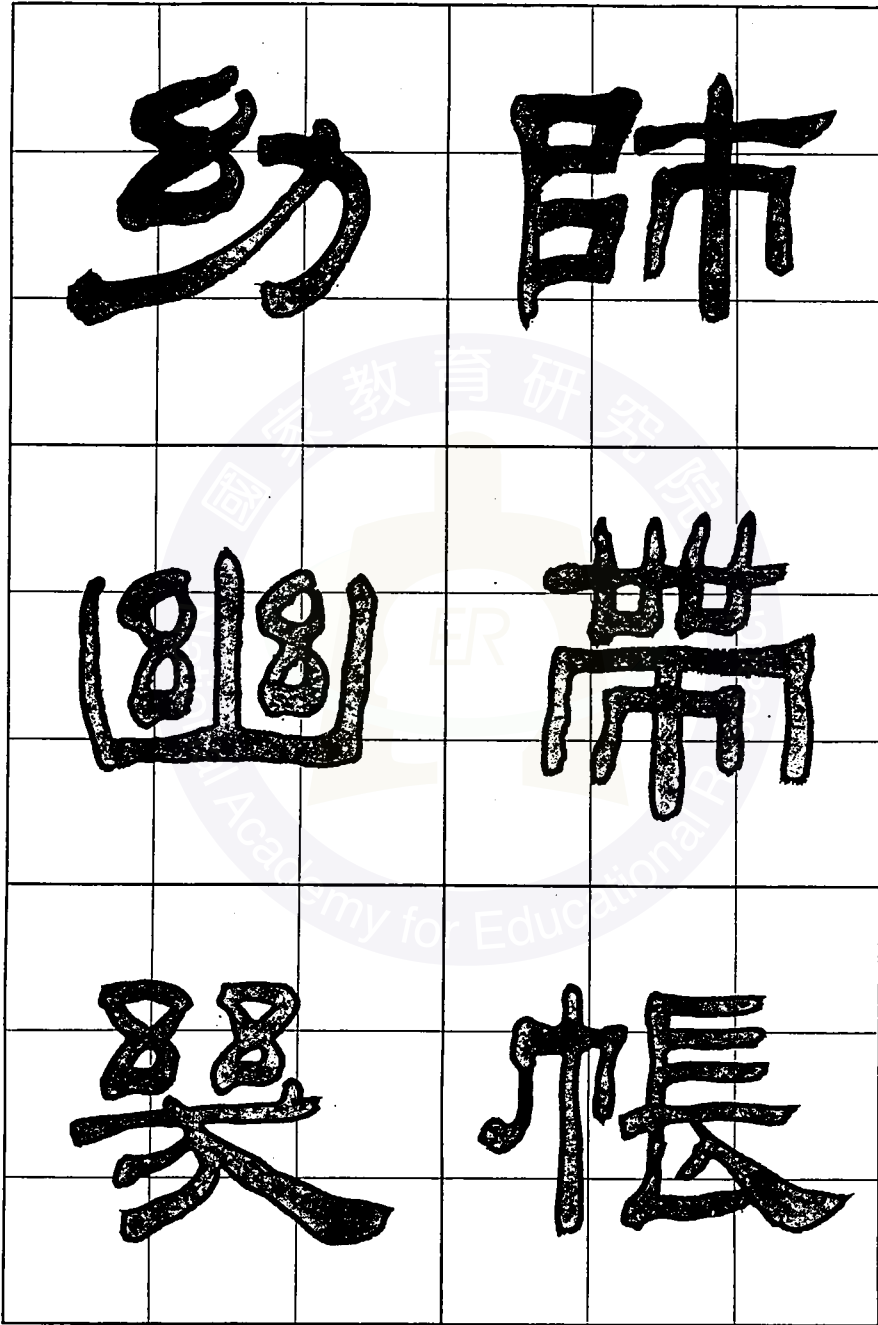 師帶帳
幼幽幾
國家教育研究院
National Academy for Educational Research